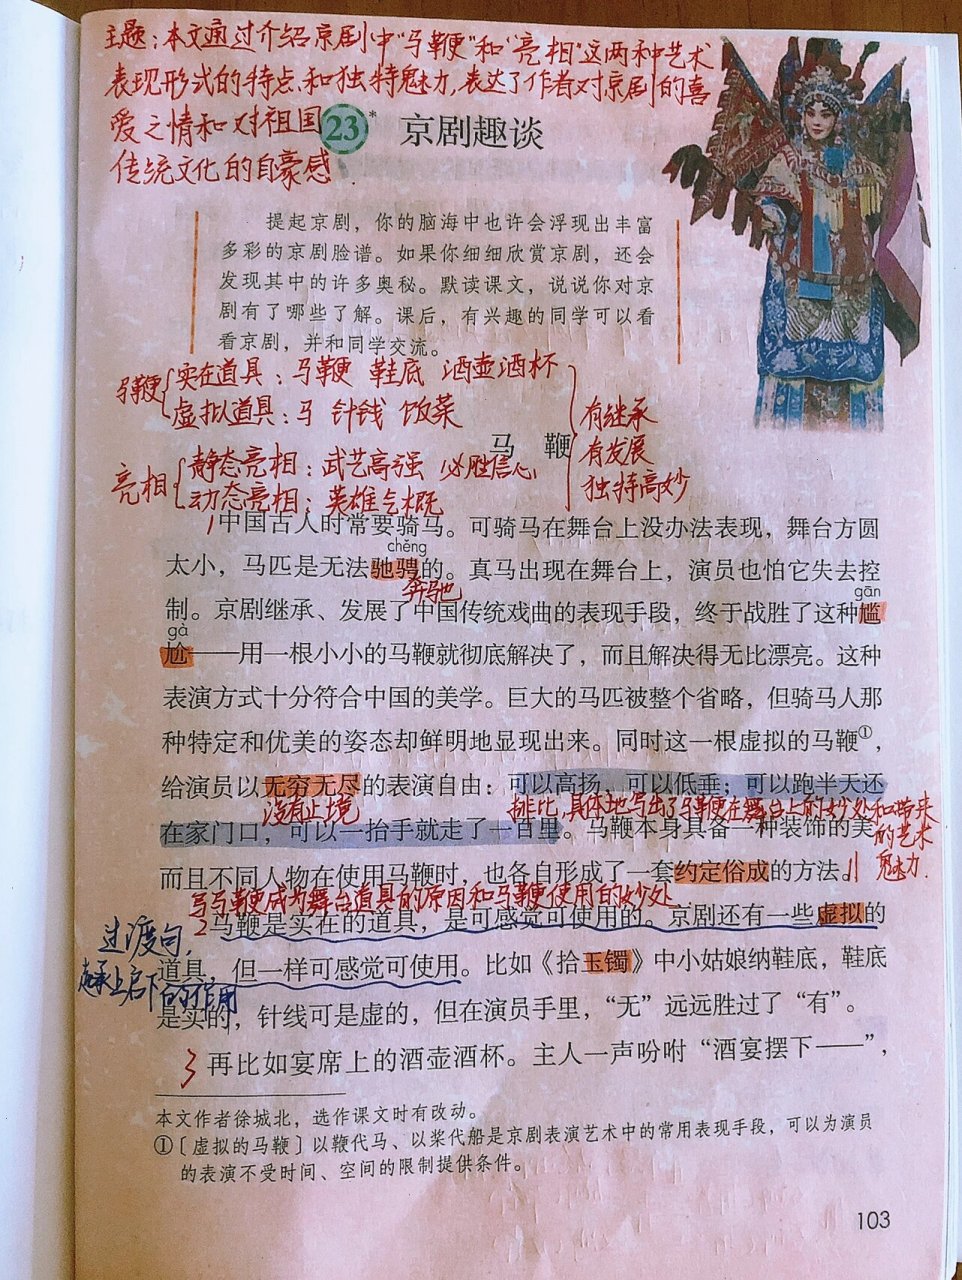 主题：本文通过介绍京剧中"马鞭"和"亮相"这两种艺术
表现形式的特点和独特魅力，表达了作者对京剧的喜
爱之情和对祖国
传统文化的自豪感.
23* 京剧趣谈
提起京剧，你的脑海中也许会浮现出丰富
多彩的京剧脸谱。如果你细细欣赏京剧，还会
发现其中的许多奥秘。默读课文，说说你对京
剧有了哪些了解。课后，有兴趣的同学可以看
看京剧，并和同学交流。
马鞭 实在道具：马鞭 鞋底 酒壶酒杯
虚拟道具：马 针钱 饭菜
有继承
有发展
独特高妙
马 鞭
亮相 静态亮相：武艺高强 必胜信心
动态亮相：英雄气概
1 中国古人时常要骑马。可骑马在舞台上没办法表现，舞台方圆
chěng
太小，马匹是无法驰骋的。真马出现在舞台上，演员也怕它失去控
奔驰
gān
制。京剧继承、发展了中国传统戏曲的表现手段，终于战胜了这种尴
gà
尬——用一根小小的马鞭就彻底解决了，而且解决得无比漂亮。这种
表演方式十分符合中国的美学。巨大的马匹被整个省略，但骑马人那
种特定和优美的姿态却鲜明地显现出来。同时这一根虚拟的马鞭①，
给演员以无穷无尽的表演自由：可以高扬，可以低垂；可以跑半天还
没有止境
排比，具体地写出了马鞭在舞台上的妙处和带来
的艺术
魅力.
在家门口，可以一抬手就走了一百里。马鞭本身具备一种装饰的美，
而且不同人物在使用马鞭时，也各自形成了一套约定俗成的方法。
写马鞭成为舞台道具的原因和马鞭使用的妙处
2 马鞭是实在的道具，是可感觉可使用的。京剧还有一些虚拟的
过渡句，
承上启下的作用
道具，但一样可感觉可使用。比如《拾玉镯》中小姑娘纳鞋底，鞋底
是实的，针线可是虚的，但在演员手里，“无”远远胜过了“有”。
3 再比如宴席上的酒壶酒杯。主人一声吩咐“酒宴摆下——”，
本文作者徐城北，选作课文时有改动。
①〔虚拟的马鞭〕以鞭代马、以桨代船是京剧表演艺术中的常用表现手段，可以为演员
的表演不受时间、空间的限制提供条件。
103